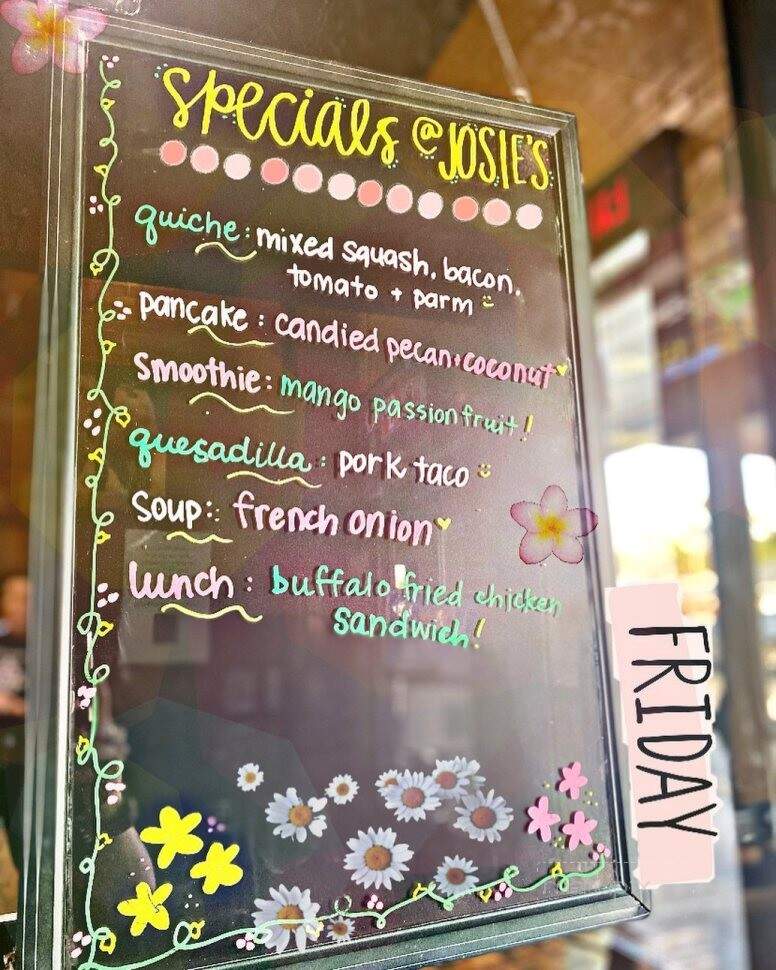 specials @ JOSIE'S
quiche: mixed squash, bacon,
tomato + parm
pancake: candied pecan + coconut
Smoothie: mango passionfruit!
quesadilla: pork taco
Soup: french onion
lunch: buffalo fried chicken
sandwich!
FRIDAY